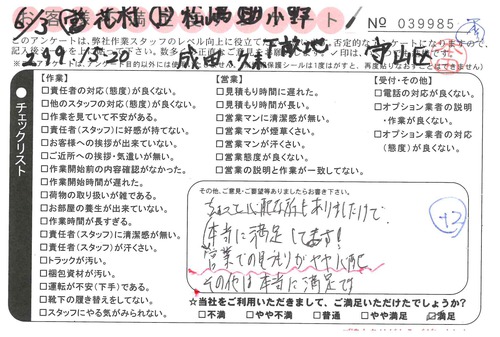 5/3
花村
松崎
小野
№ 039985
このアンケートは、弊社作業スタッフのレベル向上に役立て
守山区
【作業】
□責任者の対応(態度)が良くない。
□他のスタッフの対応(態度)が良くない。
□作業を見ていて不安がある。
□責任者(スタッフ)に好感が持てない。
□お客様への挨拶が出来ていない。
□ご近所への挨拶・気遣いが無い。
□作業開始前の内容確認がなかった。
□作業開始時間が遅れた。
□荷物の取り扱いが雑である。
□お部屋の養生が出来ていない。
□作業時間が長すぎる。
□責任者(スタッフ)に清潔感が無い。
□責任者(スタッフ)が汗くさい。
□トラックが汚い。
□梱包資材が汚い。
□運転が不安(下手)である。
□靴下の履き替えをしてない。
□スタッフにやる気がみられない。
【営業】
□見積もり時間に遅れた。
□見積もり時間が長い。
□営業マンに清潔感が無い。
□営業マンが煙草くさい。
□営業マンが汗くさい。
□営業態度が良くない。
□営業の説明と作業が一致してない。
【受付・その他】
□電話の対応が良くない。
□オプション業者の説明
・作業が良くない。
□オプション業者の対応
(態度)が良くない。
チェックリスト
その他、ご意見・ご要望等ありましたらお書き下さい。
ちょっと心配な所もありましたけど
本当に満足してます!
営業での見積りがやや心配
その他は本当に満足です
+2
☆当社をご利用いただきまして、ご満足いただけたでしょうか?
□不満 □やや不満 □普通 □やや満足 ☑満足